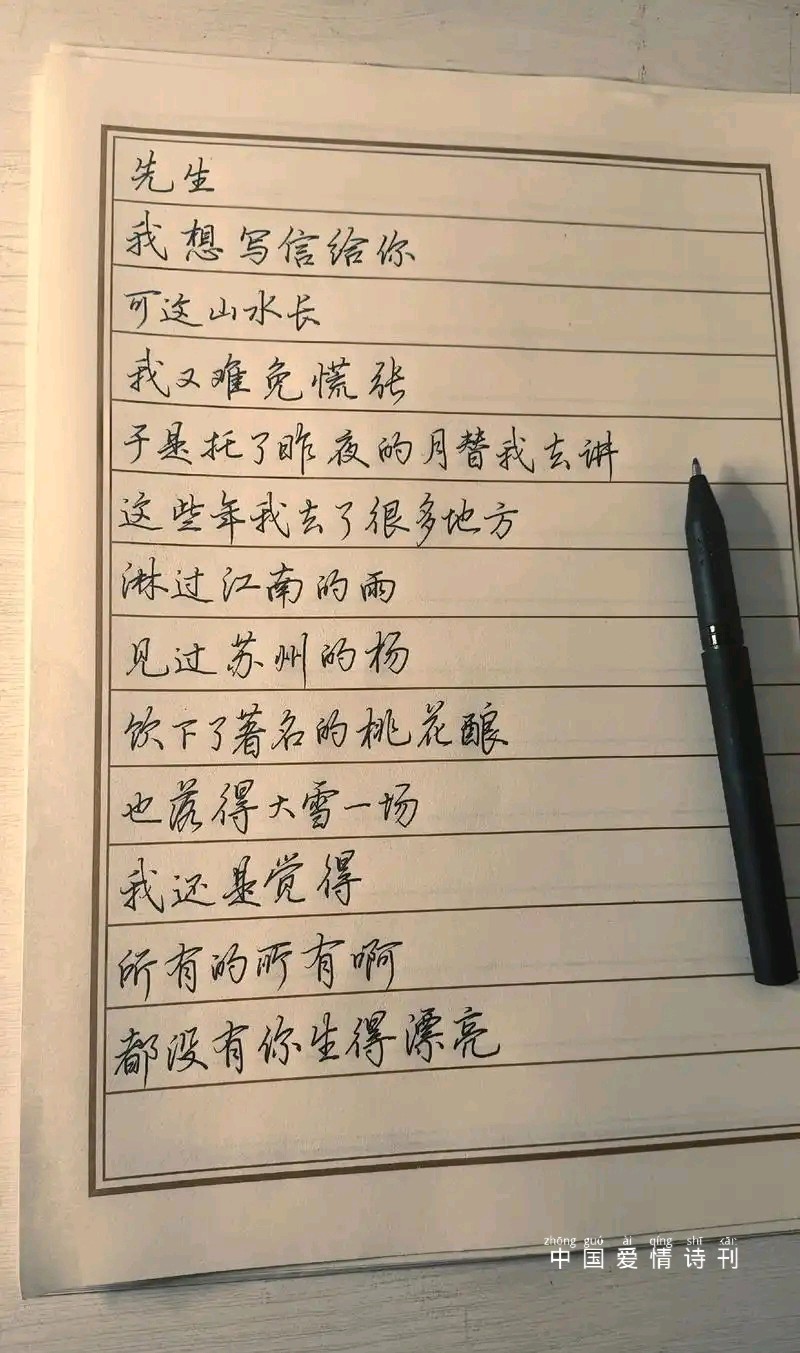 先生
我想写信给你
可这山水长
我又难免慌张
于是托了昨夜的月替我去讲
这些年我去了很多地方
淋过江南的雨
见过苏州的杨
饮下了著名的桃花酿
也落得大雪一场
我还是觉得
所有的所有啊
都没有你生得漂亮
zhōng guó ài qíng shī kān
中国爱情诗刊